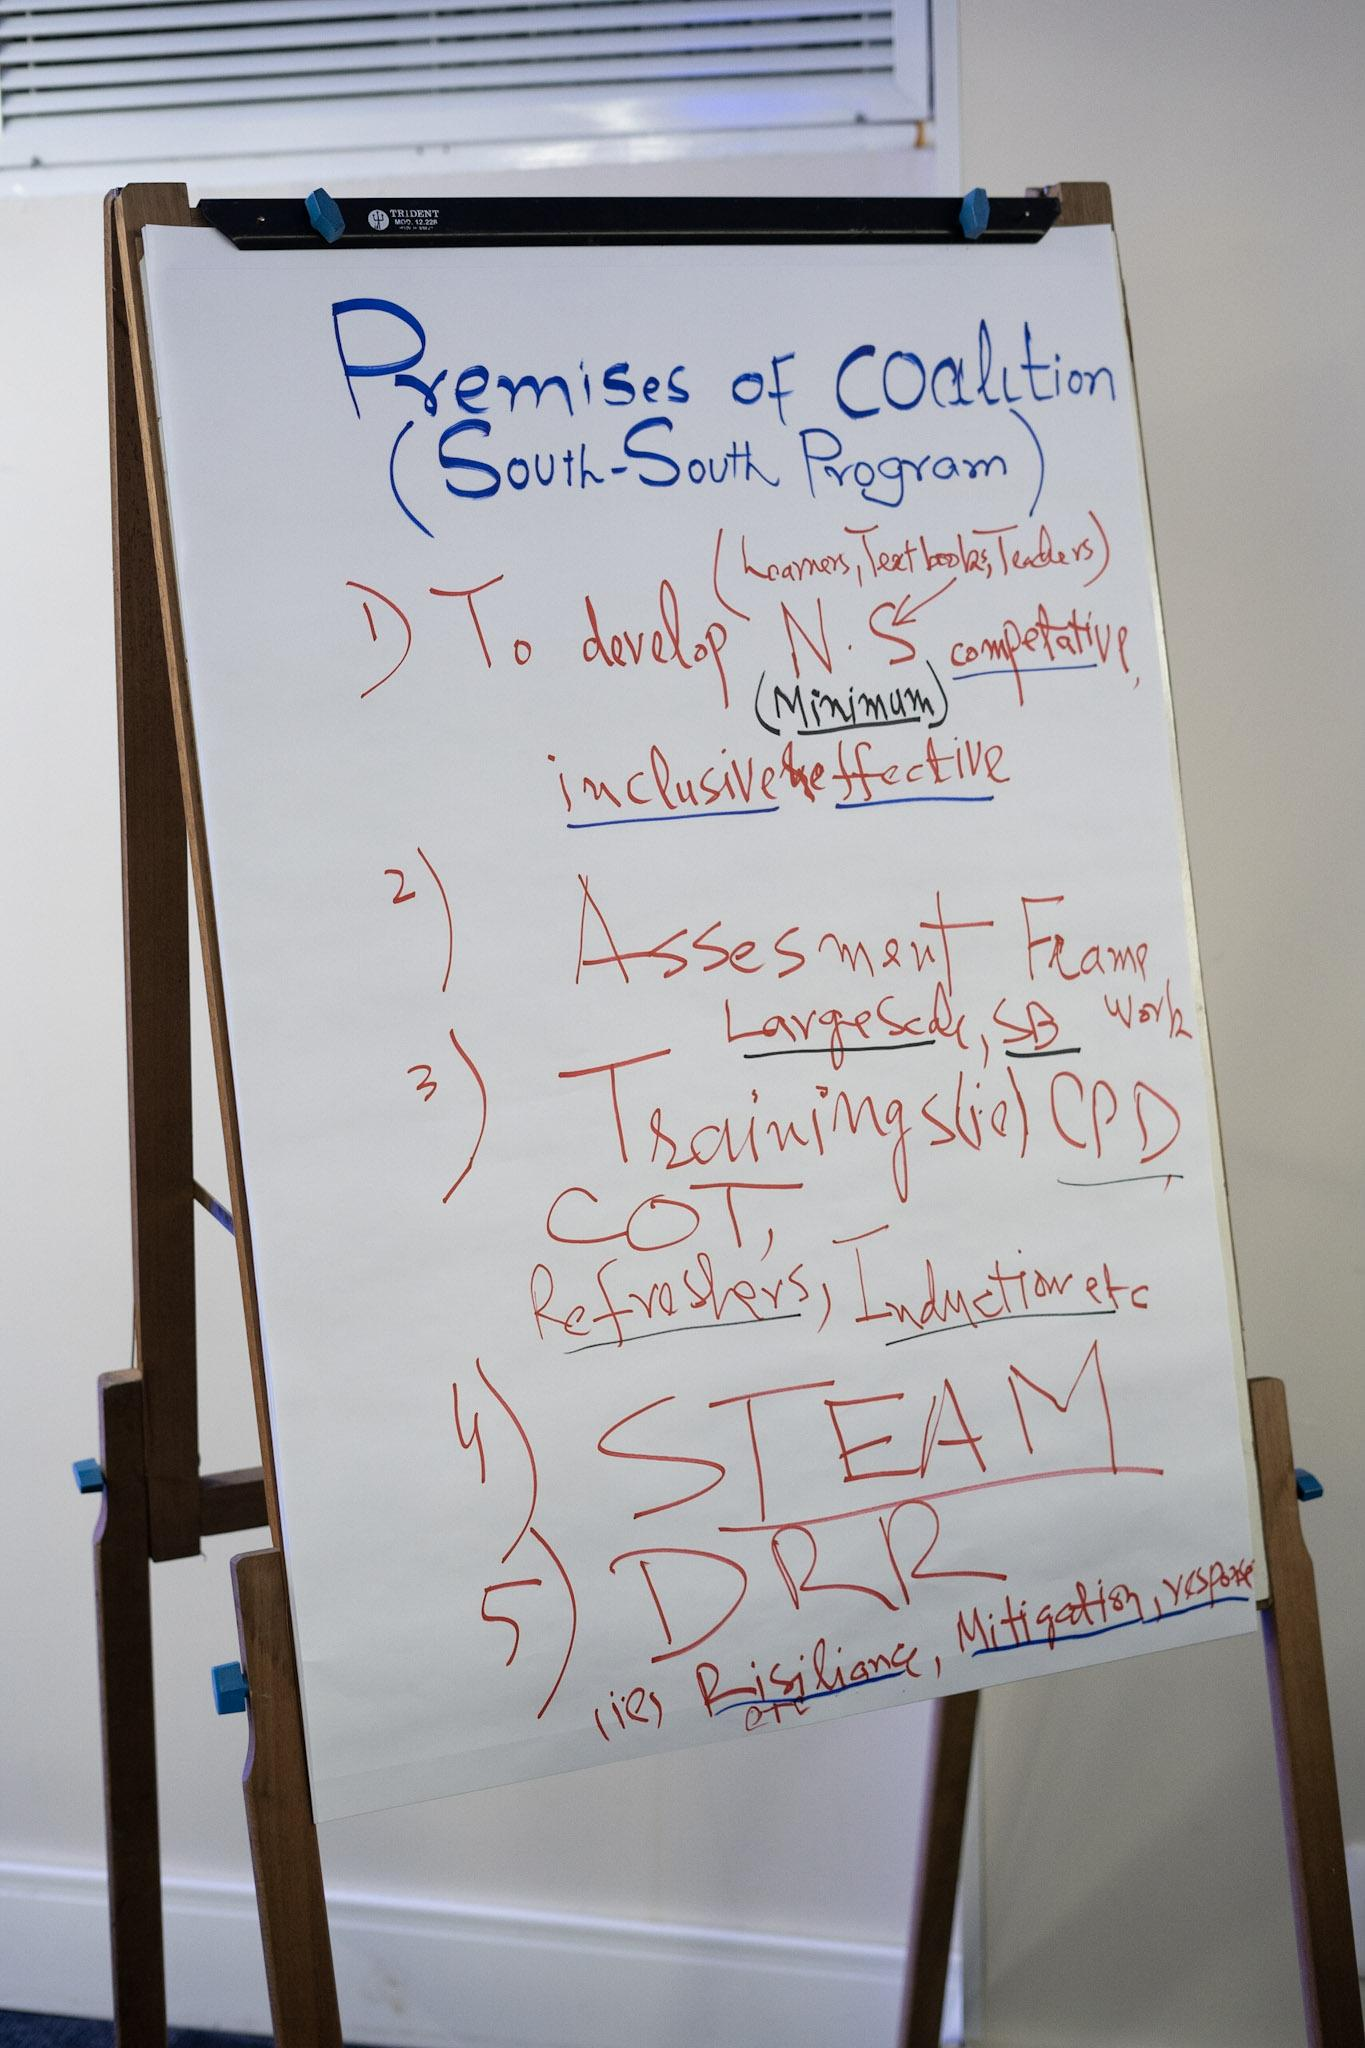 TRIDENT
MOD. 12.228
Premises of COalition
(South-South Program)
(Learners, Text books, Teachers)
1) To develop N.S competative,
(Minimum)
inclusive & effective
2) Assesment Frame
work
Largescale, SB
3) Trainings (ie) CPD
COT,
Refreshers, Induction etc
4) STEAM
5) DRR
(ie) Risiliance, Mitigation, response
etc